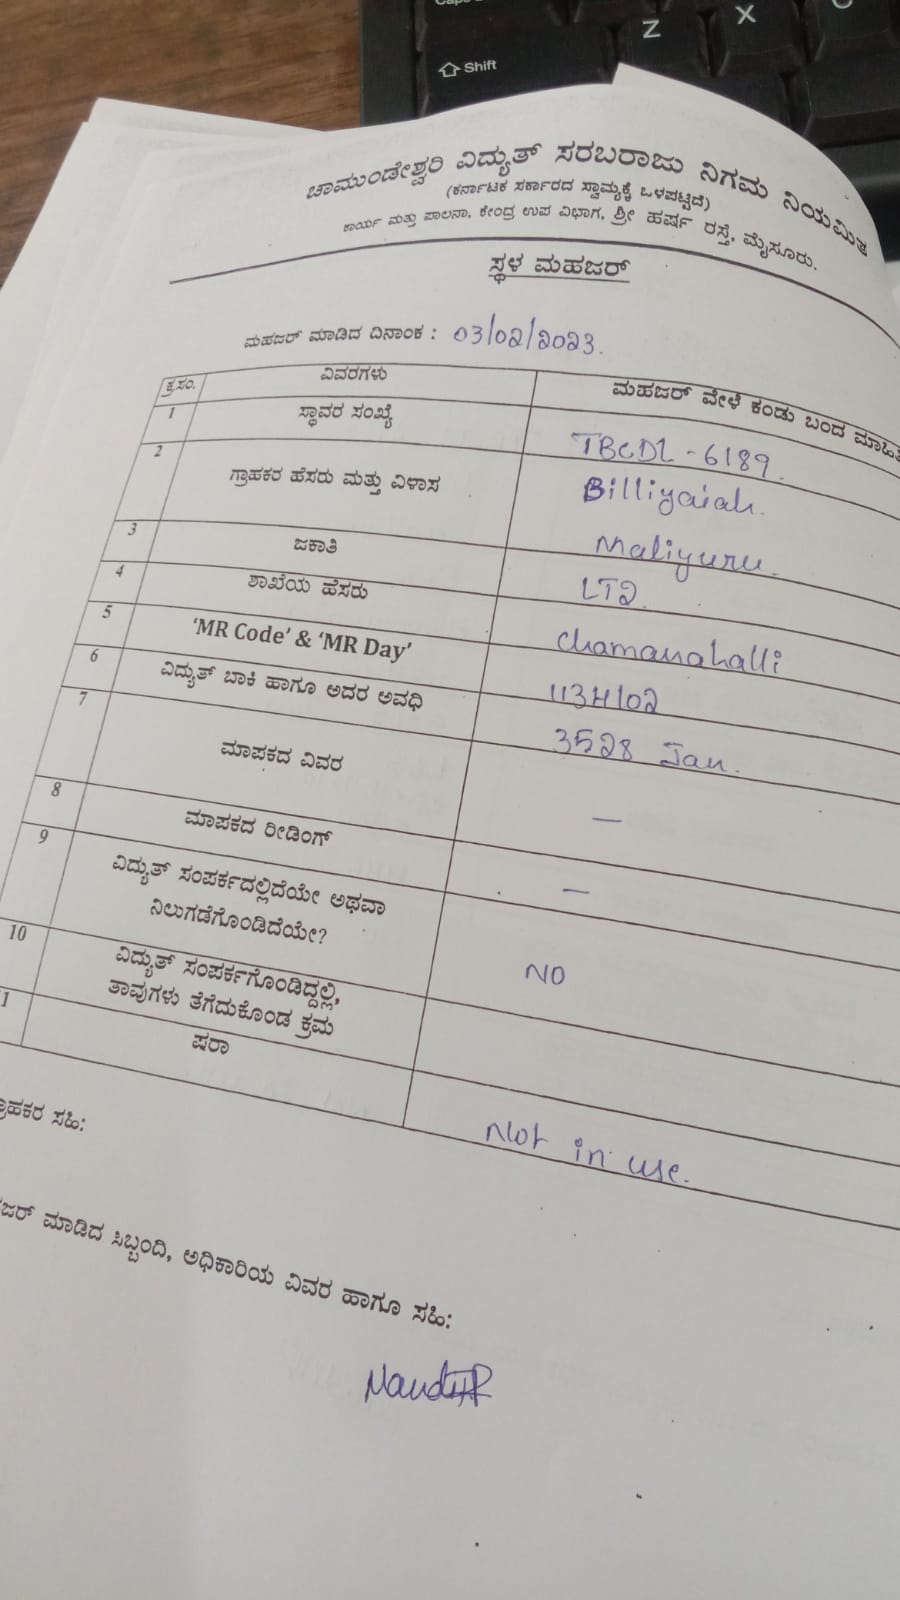 Z X
Shift
ಚಾಮುಂಡೇಶ್ವರಿ ವಿದ್ಯುತ್ ಸರಬರಾಜು ನಿಗಮ ನಿಯಮಿತ
(ಕರ್ನಾಟಕ ಸರ್ಕಾರದ ಸ್ವಾಮ್ಯಕ್ಕೆ ಒಳಪಟ್ಟಿದೆ)
ಕಾರ್ಯ ಮತ್ತು ಪಾಲನಾ, ಕೇಂದ್ರ ಉಪ ವಿಭಾಗ, ಶ್ರೀ ಹರ್ಷ ರಸ್ತೆ, ಮೈಸೂರು.
ಸ್ಥಳ ಮಹಜರ್
ಮಹಜರ್ ಮಾಡಿದ ದಿನಾಂಕ : 03/02/2023.
ಕ್ರ.ಸಂ. ವಿವರಗಳು ಮಹಜರ್ ವೇಳೆ ಕಂಡು ಬಂದ ಮಾಹಿತಿ
1 ಸ್ಥಾವರ ಸಂಖ್ಯೆ TBCDL - 6189.
2 ಗ್ರಾಹಕರ ಹೆಸರು ಮತ್ತು ವಿಳಾಸ Billiyaiah.
Maliyuru.
3 ಜಕಾತಿ LT2.
4 ಶಾಖೆಯ ಹೆಸರು Chamanahalli
5 'MR Code' & 'MR Day' 1134102
6 ವಿದ್ಯುತ್ ಬಾಕಿ ಹಾಗೂ ಅದರ ಅವಧಿ 3528 Jan.
7 ಮಾಪಕದ ವಿವರ —
8 ಮಾಪಕದ ರೀಡಿಂಗ್ —
9 ವಿದ್ಯುತ್ ಸಂಪರ್ಕದಲ್ಲಿದೆಯೇ ಅಥವಾ
ನಿಲುಗಡೆಗೊಂಡಿದೆಯೇ? NO
10 ವಿದ್ಯುತ್ ಸಂಪರ್ಕಗೊಂಡಿದ್ದಲ್ಲಿ,
ತಾವುಗಳು ತೆಗೆದುಕೊಂಡ ಕ್ರಮ
1 ಷರಾ Not in use.
ಗ್ರಾಹಕರ ಸಹಿ:
ಮಾಡಿದ ಸಿಬ್ಬಂದಿ, ಅಧಿಕಾರಿಯ ವಿವರ ಹಾಗೂ ಸಹಿ: